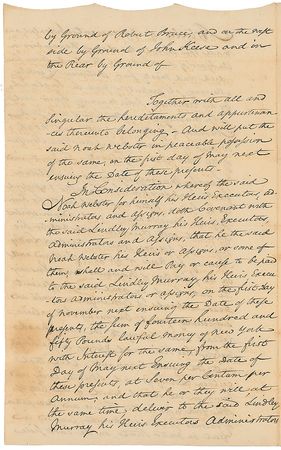 by Ground of Robert Bruce, and on the west
side by Ground of John Keese and in
the Rear by Ground of
Together with all and
singular the hereditaments and appurtenan-
-ces thereunto belonging, - And will put the
said Noah Webster in peaceable possession
of the same, on the first day of May next
ensuing the Date of these presents. -
In Consideration whereof the said
Noah Webster for himself his Heirs Executors, ad-
ministrators and assigns, doth Covenant with
the said Lindley Murray, his Heirs, Executors,
Administrators and Assigns, that he the said
Noah Webster his Heirs or Assigns, or some of
them, shall and will Pay or cause to be paid
to the said Lindley Murray, his Heirs Execu-
-tors Administrators or assigns, on the first Day
of november next ensuing the Date of these
presents, the sum of fourteen hundred and
fifty Pounds lawful money of New York
with Interest for the same, from the first
Day of May next Ensuing the Date of
these presents, at Seven per Centum per
Annum; and that he or they will, at
the same time, deliver to the said Lindley
Murray his Heirs Executors Administrators